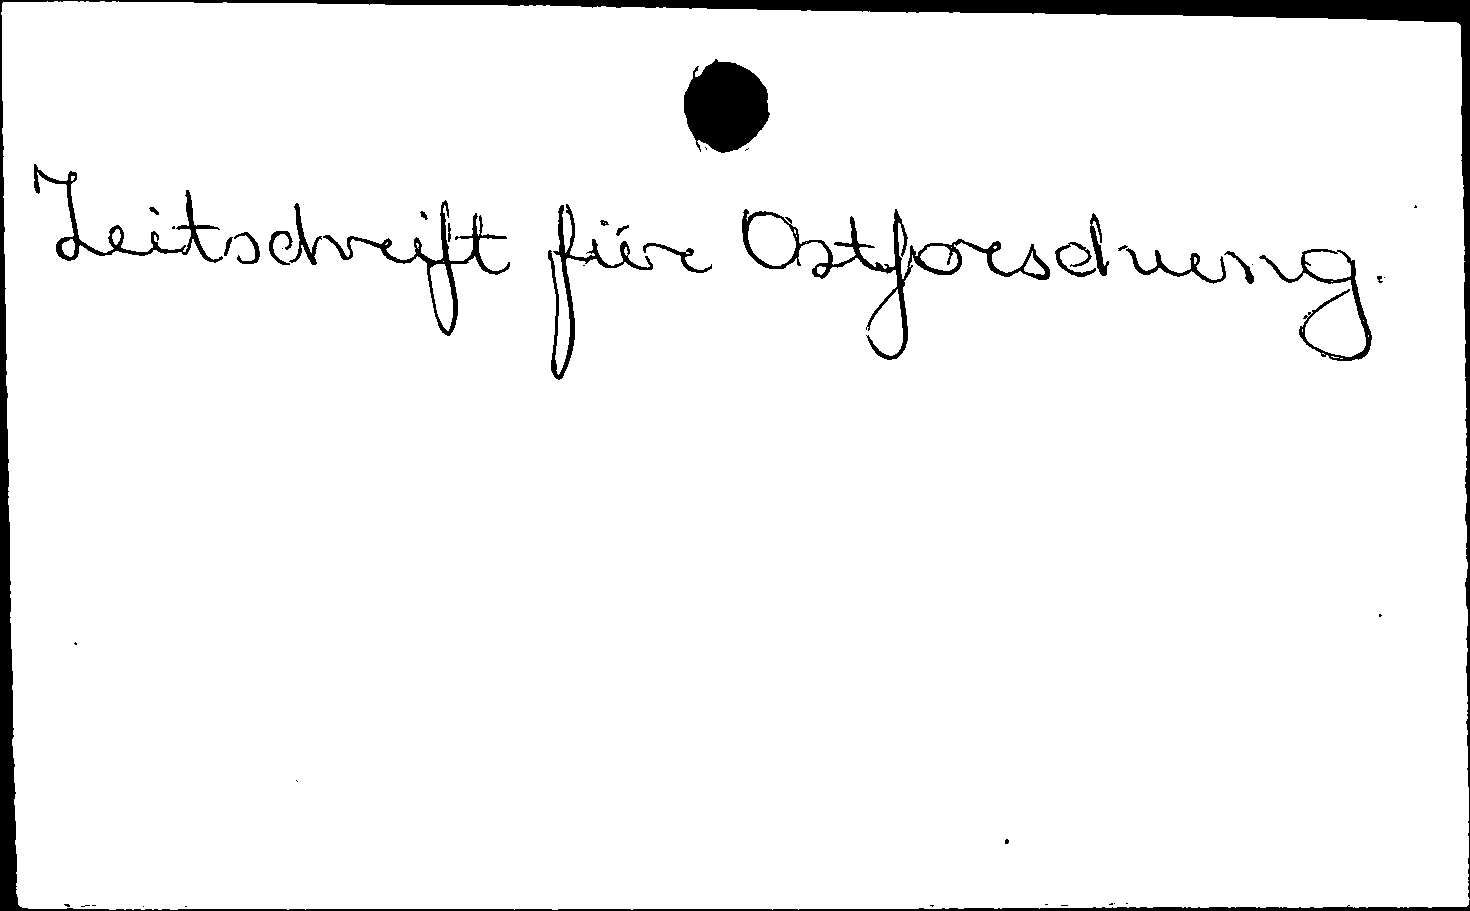 Zeitschrift für Ostforschung.